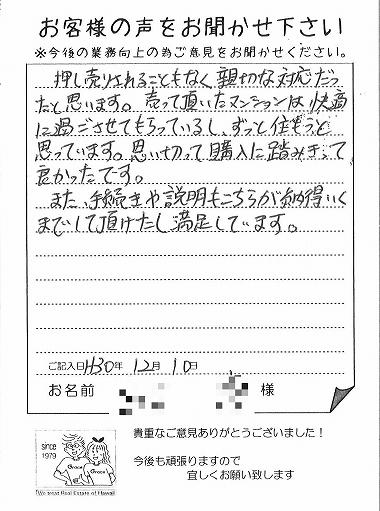 お客様の声をお聞かせ下さい
※今後の業務向上の為ご意見をお聞かせください。
押し売りされることもなく親切な対応だっ
たと思います。売って頂いたマンションは快適
に過ごさせてもらっているし、ずっと住もうと
思っています。思い切って購入に踏みきって
良かったです。
また、手続きや説明もこちらが納得いく
までして頂けたし満足しています。
ご記入日H30年 12月 10日
お名前 様
since
1979
Grace
Grace
We treat Real Estate of Hawaii
貴重なご意見ありがとうございました！
今後も頑張りますので
宜しくお願い致します